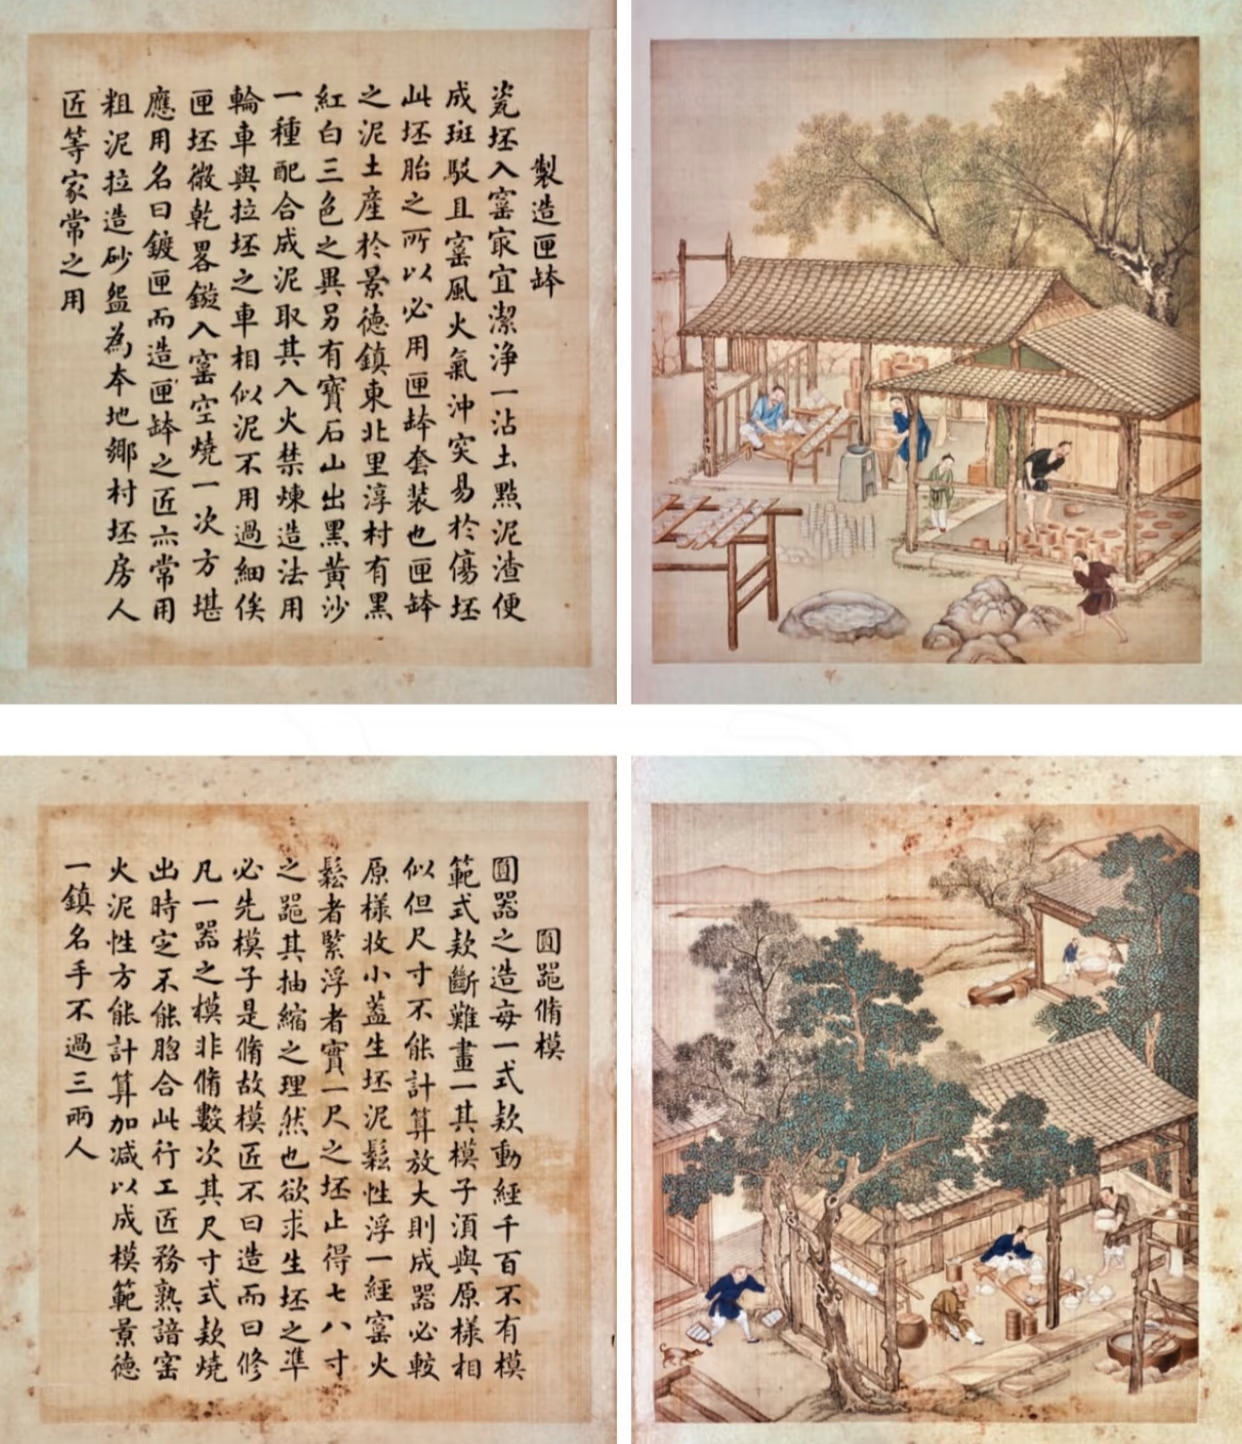 製造匣鉢
瓷坯入窰㝡宜潔淨一沾土點泥渣便
成斑駁且窰風火氣沖突易於傷坯
此坯胎之所以必用匣鉢套装也匣鉢
之泥土産於景德鎮東北里淳村有黑
紅白三色之異另有寳石山出黑黄沙
一種配合成泥取其入火禁煉造法用
輪車與拉坯之車相似泥不用過細俟
匣坯微乾畧鏇入窰空燒一次方堪
應用名曰鍍匣而造匣鉢之匠亦常用
粗泥拉造砂盌為本地鄉村坯房人
匠等家常之用
圓器脩模
圓器之造每一式欵動經千百不有模
範式欵斷難畫一其模子湏與原樣相
似但尺寸不能計算放大則成器必較
原樣收小蓋生坯泥鬆性浮一經窰火
鬆者緊浮者實一尺之坯止得七八寸
之器其抽縮之理然也欲求生坯之準
必先模子是脩故模匠不曰造而曰修
凡一器之模非脩數次其尺寸式欵燒
出時定不能脗合此行工匠務熟諳窰
火泥性方能計算加減以成模範景德
一鎮名手不過三兩人